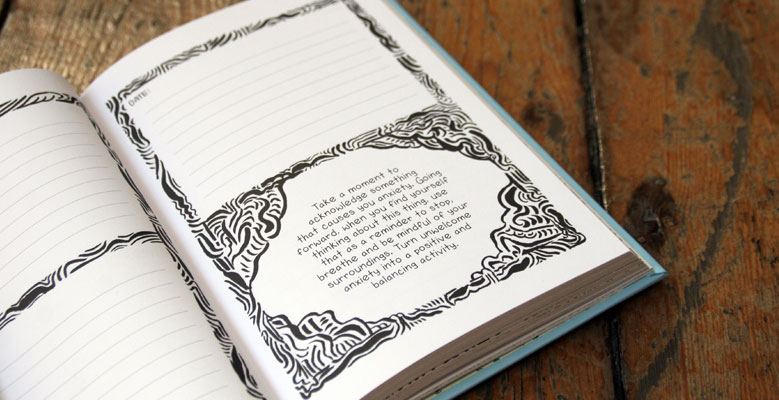 DATE:
Take a moment to
acknowledge something
that causes you anxiety. Going
forward, when you find yourself
thinking about this thing, use
that as a reminder to stop,
breathe and be mindful of your
surroundings. Turn unwelcome
anxiety into a positive and
balancing activity.